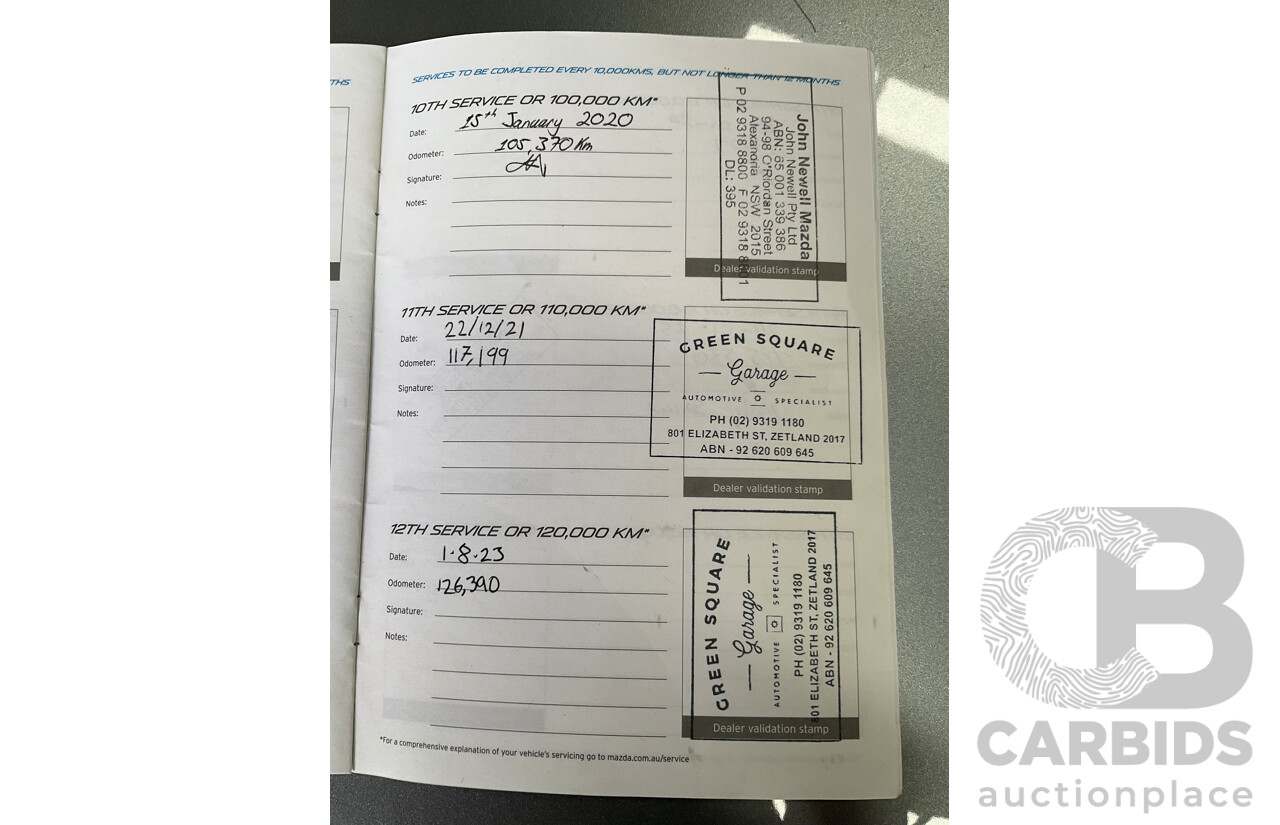 THS
SERVICES TO BE COMPLETED EVERY 10,000KMS, BUT NOT LONGER THAN 12 MONTHS
10TH SERVICE OR 100,000 KM*
Date: 15th January 2020
Odometer: 105,370 Km
Signature:
Notes:
John Newell Mazda
John Newell Pty Ltd
ABN: 85 001 339 386
94-98 O'Riordan Street
Alexandria NSW 2015
P 02 9318 8800 F 02 9318 8801
DL: 395
Dealer validation stamp
11TH SERVICE OR 110,000 KM*
Date: 22/12/21
Odometer: 117,199
Signature:
Notes:
GREEN SQUARE
Garage
AUTOMOTIVE SPECIALIST
PH (02) 9319 1180
801 ELIZABETH ST, ZETLAND 2017
ABN - 92 620 609 645
Dealer validation stamp
12TH SERVICE OR 120,000 KM*
Date: 1.8.23
Odometer: 126,390
Signature:
Notes:
GREEN SQUARE
Garage
AUTOMOTIVE SPECIALIST
PH (02) 9319 1180
801 ELIZABETH ST, ZETLAND 2017
ABN - 92 620 609 645
Dealer validation stamp
*For a comprehensive explanation of your vehicle's servicing go to mazda.com.au/service
CB
CARBIDS
auctionplace